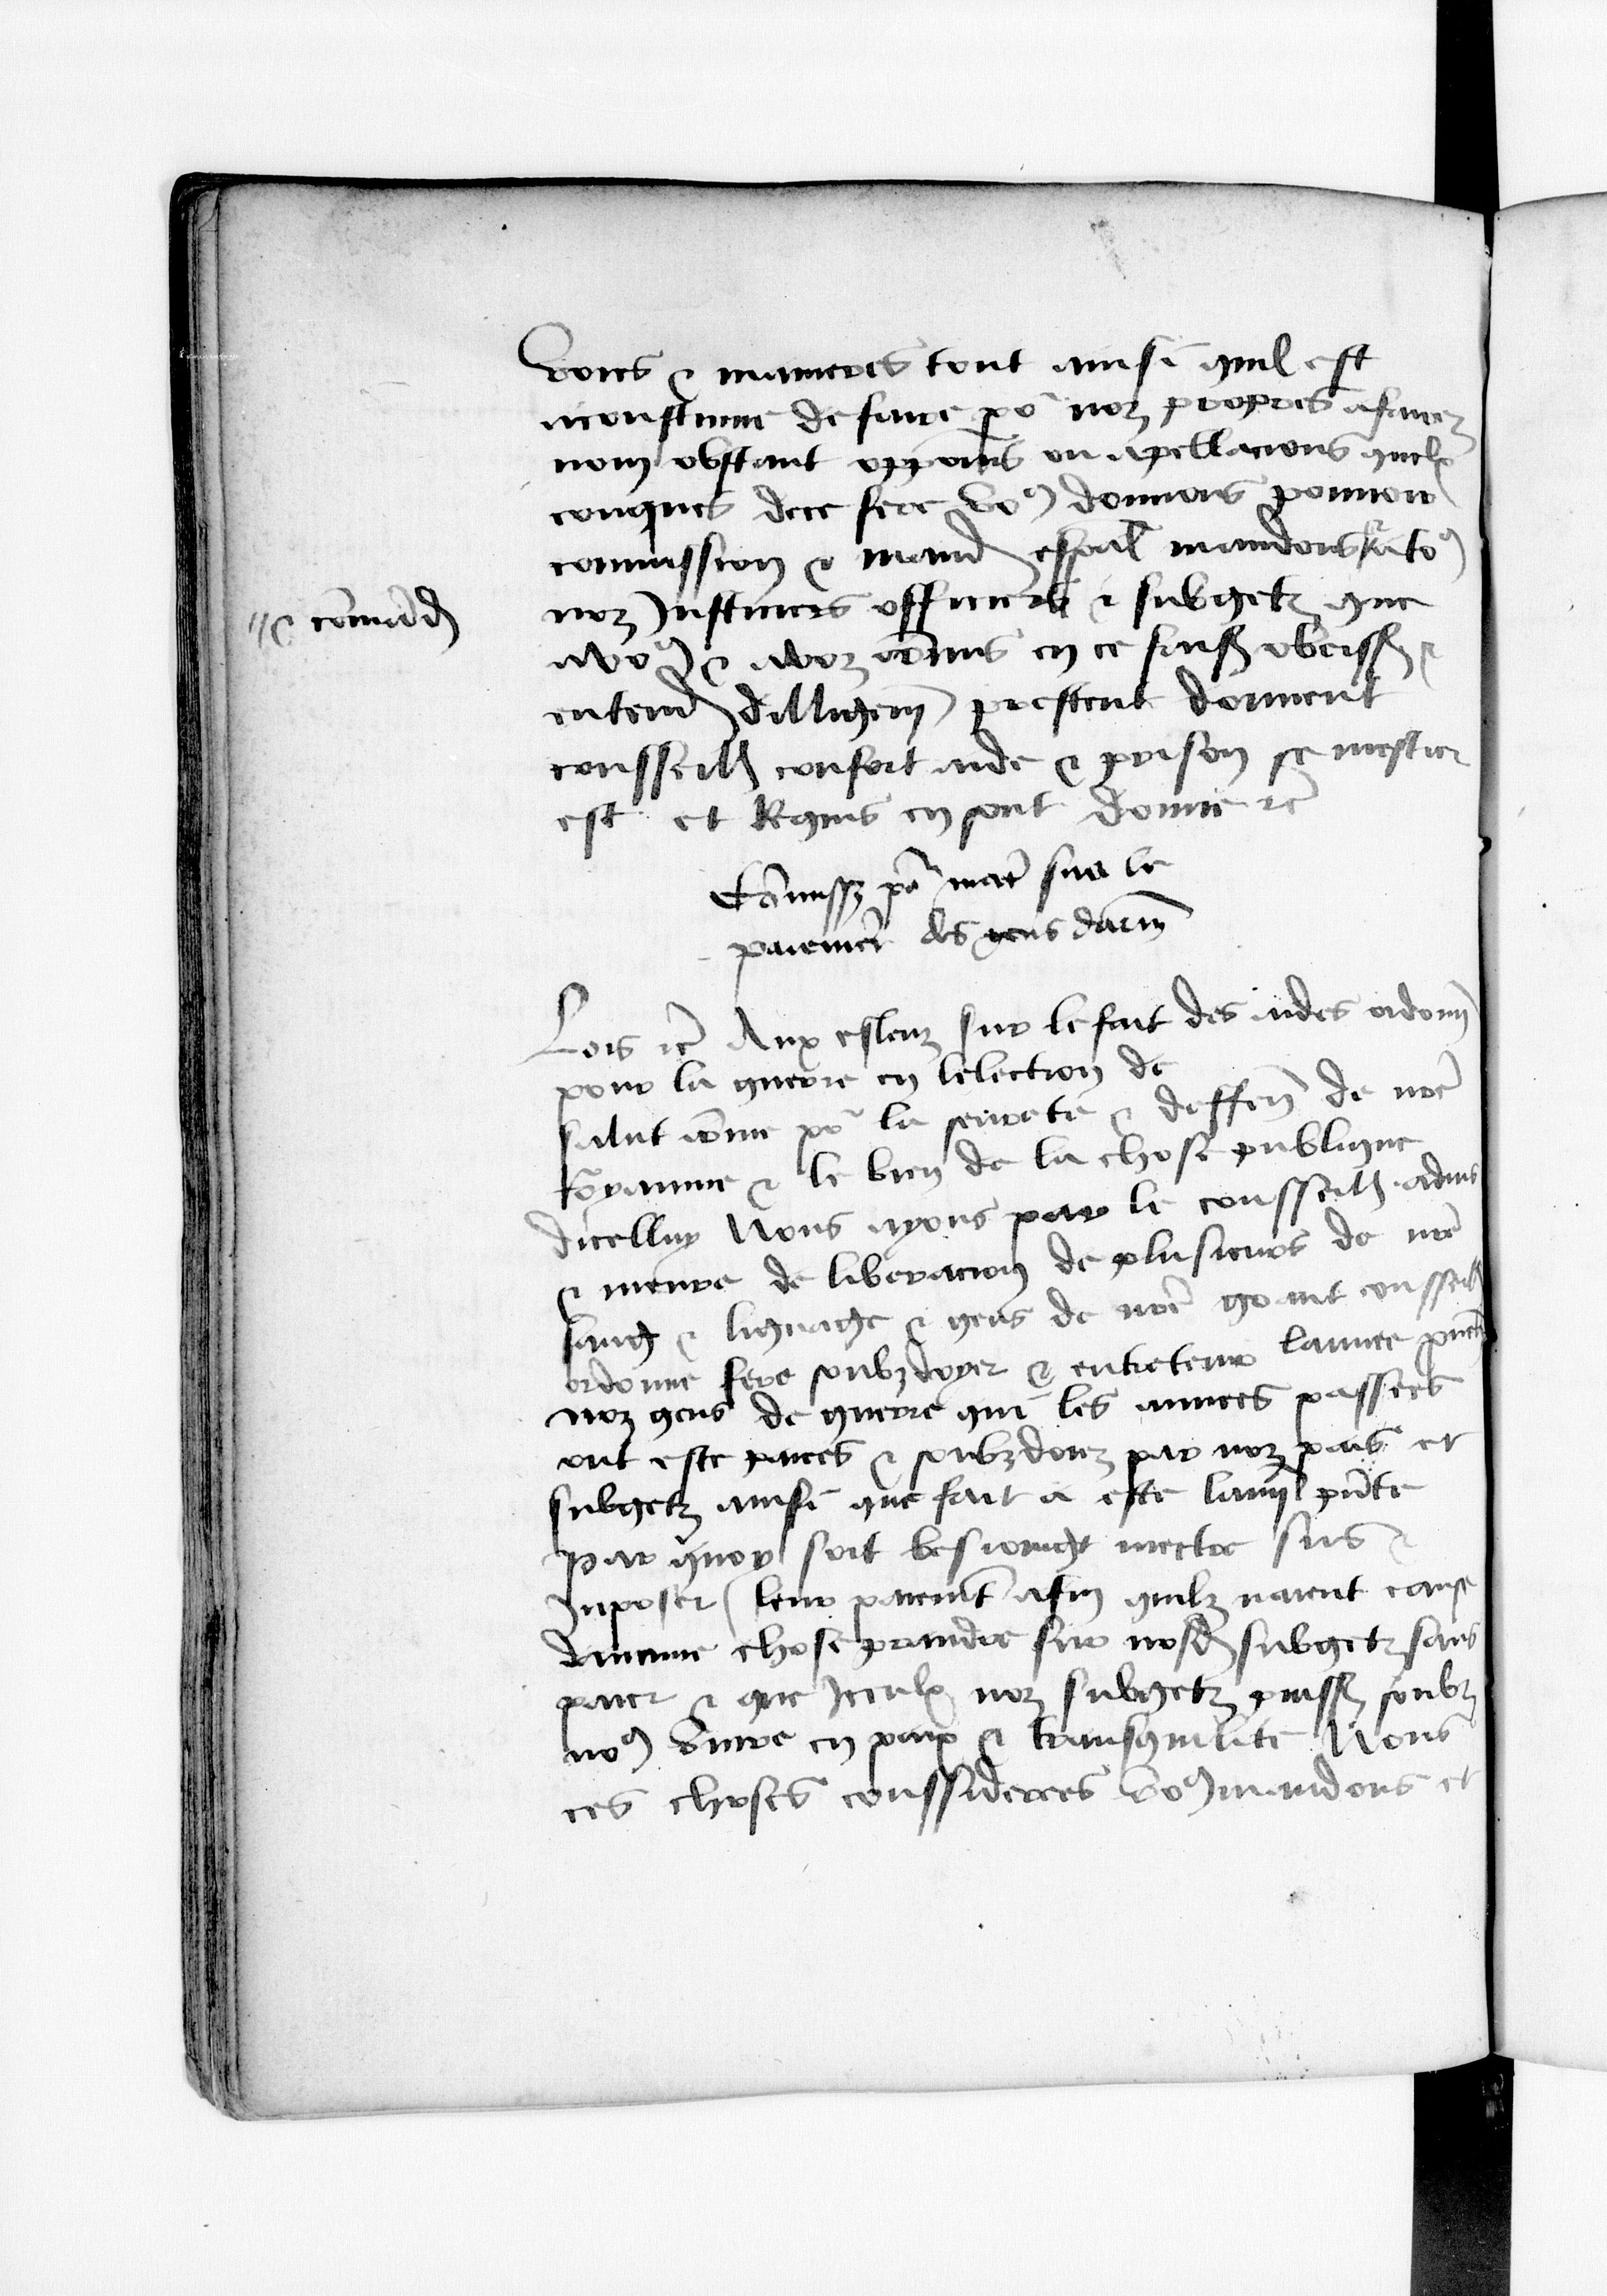 voies & manieres tout ainsi quil est
acoustume de faire po noz propres afaires
nom obstant oppoons ou apellacions quelx
conques de ce fere vo9 donnons pouvoir
commission & mand espal mandons a to9
// & command
noz Justiciers officiers & subgetz que
a vo9 & a voz commis en ce faiss obeissent &
entend dilligem prestent donnent
consseilh confort aide & prison se mestier
est et Requis en sont donne etc
Commiss po metre sus le
paiement des gens darm
Lois etc Aux esleuz sur le fait des aides ordonn
pour la guerre en lelection de
salut comme po la seurete & deffen de nre
Royaume & le bien de la chose publique
dicelluy Nous ayons par le consseilh advis
& meure deliberacion de plusieurs de nre
sang & lignage & gens de nre grant consseilh
ordonne fere soubzdoyer & entretenir lannee pnte
noz gens de guerre qui les annees passees
ont este paiees & soubzdoiez par noz pais et
subgetz ainsi que fait a este lann pnte
Par quoy soit besioingt mectre sus &
Inposer leur paiemt afin quilz naient cause
daucune chose prandre sur nosd subgetz sans
paier & que Iceulx noz subgetz puiss soubz
no9 vivre en paix & transquilite Nous
ces choses conssiderees vo9 mandons et